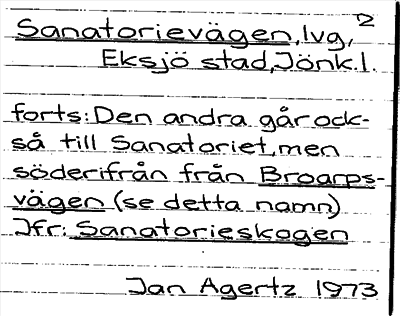 2
Sanatorievägen, lvg,
Eksjö stad, Jönk.l.
forts: Den andra går ock-
så till Sanatoriet, men
söderifrån från Broarps-
vägen (se detta namn)
Jfr: Sanatorieskogen
Jan Agertz 1973